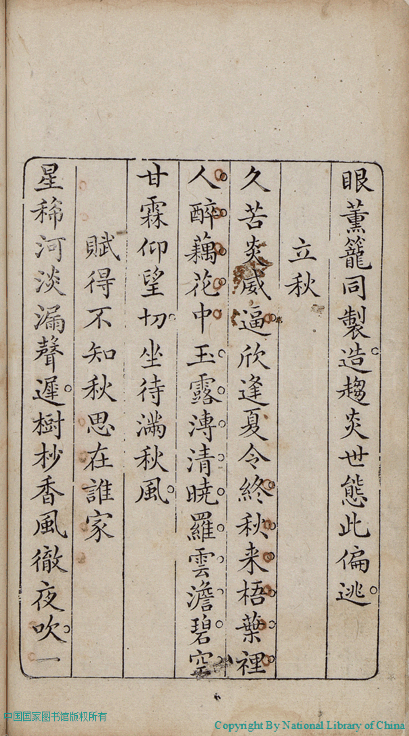 眼薰籠同製造趨炎世態此偏逃
立秋
久苦炎威逼欣逢夏令終秋来梧葉裡
人醉藕花中玉露漙清曉羅雲澹碧空
甘霖仰望切坐待滿秋風
賦得不知秋思在誰家
星稀河淡漏聲遲樹杪香風徹夜吹一
中国国家图书馆版权所有
Copyright By National Library of China